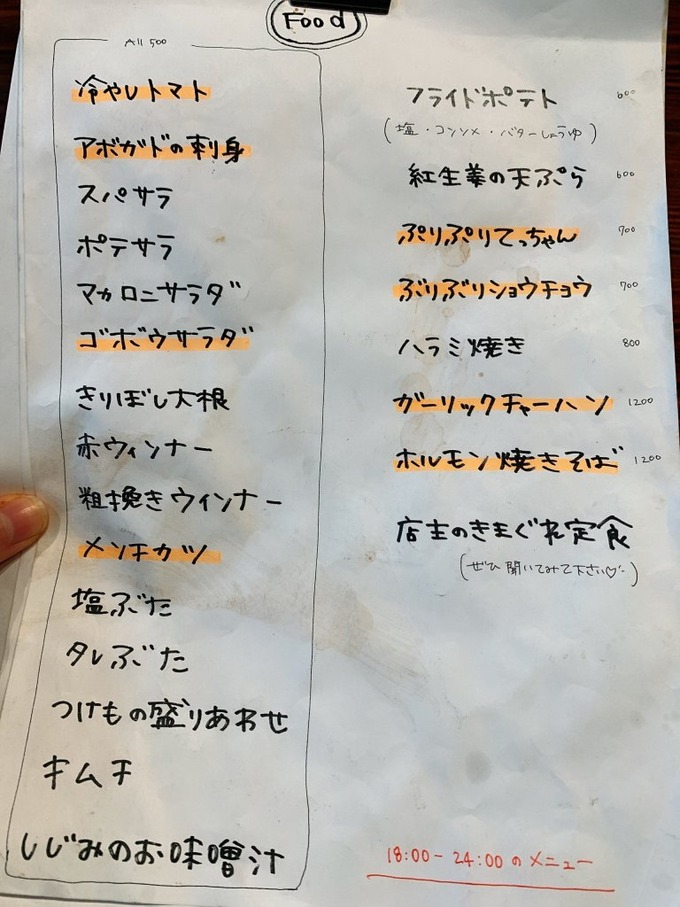 Food
All 500
冷やしトマト
アボガドの刺身
スパサラ
ポテサラ
マカロニサラダ
ゴボウサラダ
きりぼし大根
赤ウィンナー
粗挽きウインナー
メンチカツ
塩ぶた
タレぶた
つけもの盛りあわせ
キムチ
しじみのお味噌汁
フライドポテト 600
(塩・コンソメ・バターしょうゆ)
紅生姜の天ぷら 600
ぷりぷりてっちゃん 700
ぶりぶりショウチョウ 700
ハラミ焼き 800
ガーリックチャーハン 1200
ホルモン焼きそば 1200
店主のきまぐれ定食
(ぜひ聞いてみて下さい♡)
18:00-24:00のメニュー